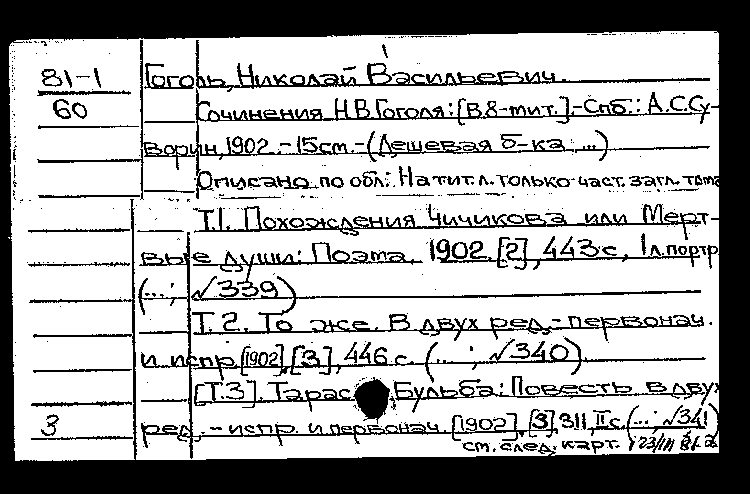 81-1 Гоголь, Николай Васильевич.
60 Сочинения Н.В.Гоголя: [В 8-ми т.].-Спб.: А.С.Су-
ворин, 1902.-15см.-(Дешевая б-ка ; ...)
Описано по обл.: На тит.л. только част. загл. тома
Т.1. Похождения Чичикова или Мерт-
вые души: Поэма. 1902. [2], 443 с., 1 л.портр.
(...; √339)
Т.2. То же. В двух ред.-первонач.
и испр. [1902]. [3], 446 с. (...; √340)
[Т.3]. Тарас Бульба: Повесть в двух
3 ред.-испр. и первонач. [1902]. [3], 311, II с. (...; √341)
см. след. карт.